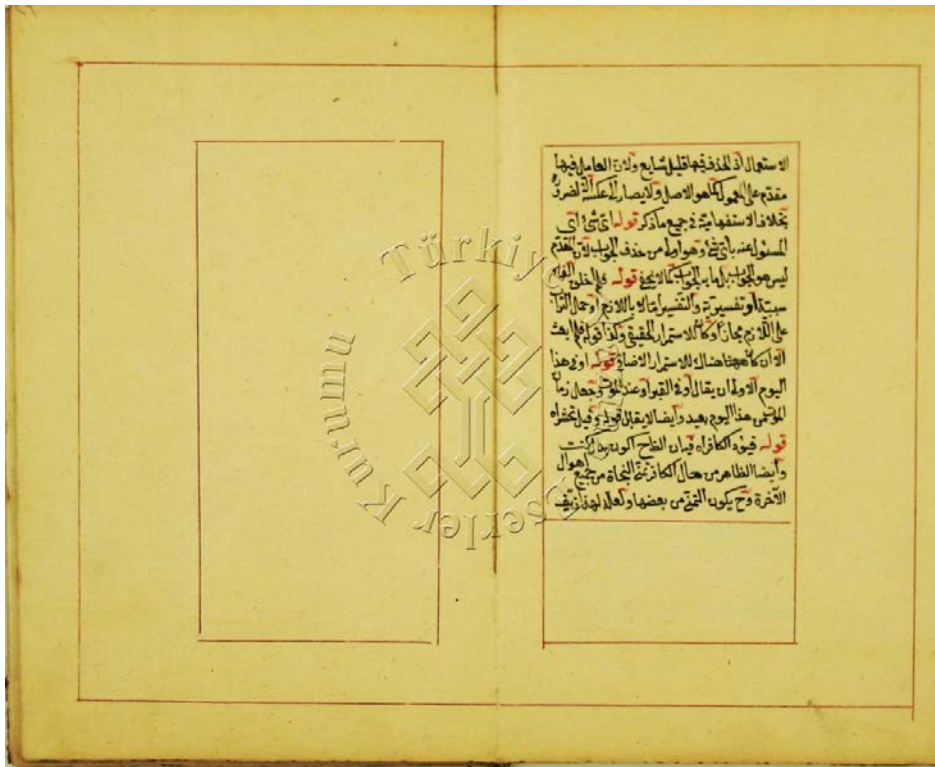 الاستعمال اذ الحذف فيها قليل شايع ولان العامل فيها
مقدم على المعمول كما هو الاصل ولا يصار الى عكسه الا لضرورة
بخلاف الاستفهامية في جميع ما ذكر قوله اى شئ اى
المسئول عنه باى شئ وهو اولى من حذف الجواب لان المقدم
ليس هو الجواب بل ما به الجواب كما لا يخفى قوله فلم اخلق الفاء
سببية او تفسيرية والتفسير اما لا باللازم او حمال التراب
على اللازم مجازا وكان للاستمرار الحقيقى وكذا قوله فلم ابعث
الا ان كان ههنا للاستمرار الاضافى قوله او فى هذا
اليوم الاولى ان يقال او فى القبر او عند الموت وجعل زمان
الموت من هذا اليوم بعيد وأيضا لا يقبال قوله وقيل تحشر اه
قوله الكافر اه فيه ان الظاهر ح اكون بدل كنت
وأيضا الظاهر من حال الكافر تمنى النجاة من جميع اهوال
الآخرة وح يكون التمنى من بعضها ولعله لهذا زيف
Türkiye Yazma Eserler Kurumu